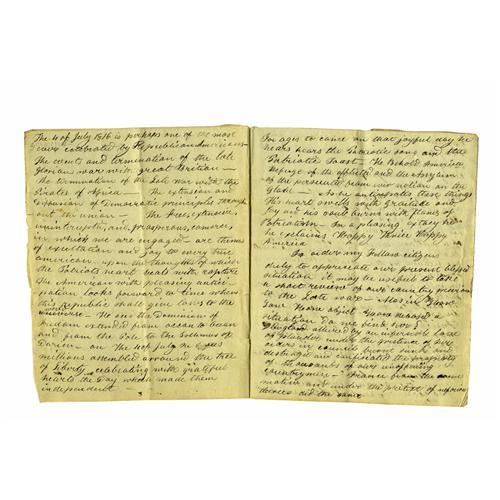 The 4 of July 1816 is perhaps one of the most
ever celebrated by Republican Americans
The events and termination of the late
Glorious war with great Britian —
the termination of the late war with the
Pirates of Africa — The extension and
diffusion of Democratic principles through
out the union — The free, extensive,
uninterrupted, and prosperous, commerce,
in which we are engaged — are themes
of exultation and Joy to every true
american — upon the thoughts of which
the Patriots heart beats with rapture
The American with pleasing antici
pation looks forward to time when
this Republic shall give laws to the
universe — He sees the Dominion of
extended from ocean to ocean
and from the Pole to the Isthmus of
Darien — on the 4 of July he sees
millions assembled around the tree
of Liberty celebrating with grateful
hearts the day which made them
independent
For ages to come on that joyful day he
hears the Patriotic song and the
Patriotic Toast — He Behold America
Refuge of the afflicted and the Asylum
of the persecuted from every nation on the
Globe — As he anticipates these things
His heart swells with gratitude and
Joy and his soul burns with flames of
Patriotism — In a pleasing extacy he
he exclaims Happy Thrice Happy
America
In order my fellow citizens
duly to appreciate our present blessed
situation it may be useful to take
a short review of our country previous
to the late war — Alas in
how abject how debased a
situation do we find her?
England allured by an insatiable love
of under the pretence of her
orders in council burnt sunk and
destroyed and confiscated the property
of thousands of our unoffending
countrymen — France from the same
motive and under the pretext of
decrees did the same